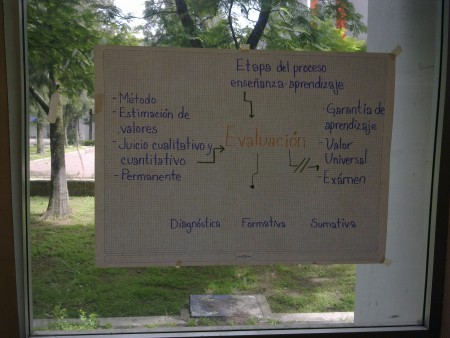 Etapa del proceso
enseñanza-aprendizaje
- Método
- Estimación de
valores
- Juicio cualitativo y
cuantitativo
- Permanente
Evaluación
- Garantía de
aprendizaje
- Valor
Universal
- Exámen
Diagnóstica Formativa Sumativa